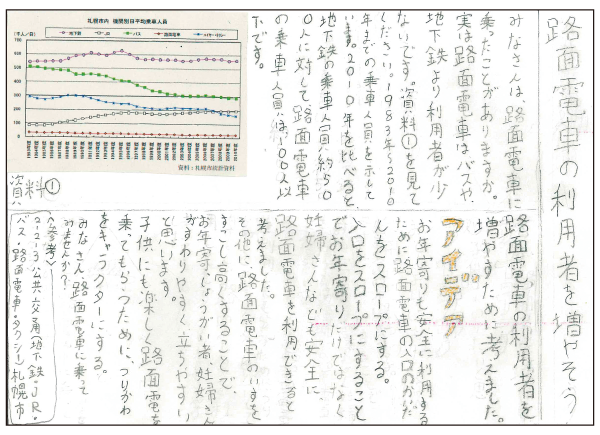 路面電車の利用者を増やそう
みなさんは、路面電車に
乗ったことがありますか。
実は路面電車は、バスや、
地下鉄より利用者が少
ないです。資料①を見て
ください。1983年~2010
年までの乗車人員を示して
います。2010年を比べると、
地下鉄の乗車人員は約50
0人に対して路面電車
の乗車人員は、100人以
下です。
札幌市内 機関別日平均乗車人員
(千人/日)
地下鉄 JR バス 路面電車 ハイヤー・タクシー
700
600
500
400
300
200
100
0
資料①
路面電車の利用者を
増やすために考えました。
アイデア
お年寄りも安全に利用する
ために路面電車の入口のかいだ
んをスロープにする。
入口をスロープにすること
でお年寄りだけではなく
妊婦さんなども安全に
路面電車を利用できると
考えました。
その他に、路面電車のいすを
すこし高くすることで、
お年寄り、しょうがい者、妊婦さん
がすわりやすく立ちやすい
と思います。
子供にも楽しく路面電車を
乗ってもらうために、つりかわ
をキャラクターにする。
みなさん、路面電車に乗って
みませんか?
<参考>
2-2-3公共交通(地下鉄・JR・
バス・路面電車・タクシー)札幌市